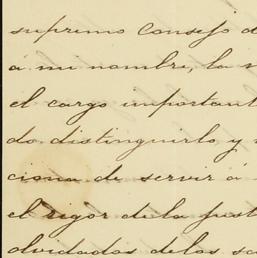 supremo Consejo d
á mi nombre, la
el cargo important
do distinguirlo y
ciona de servir á
el rigor de la just
olvidados de los sa